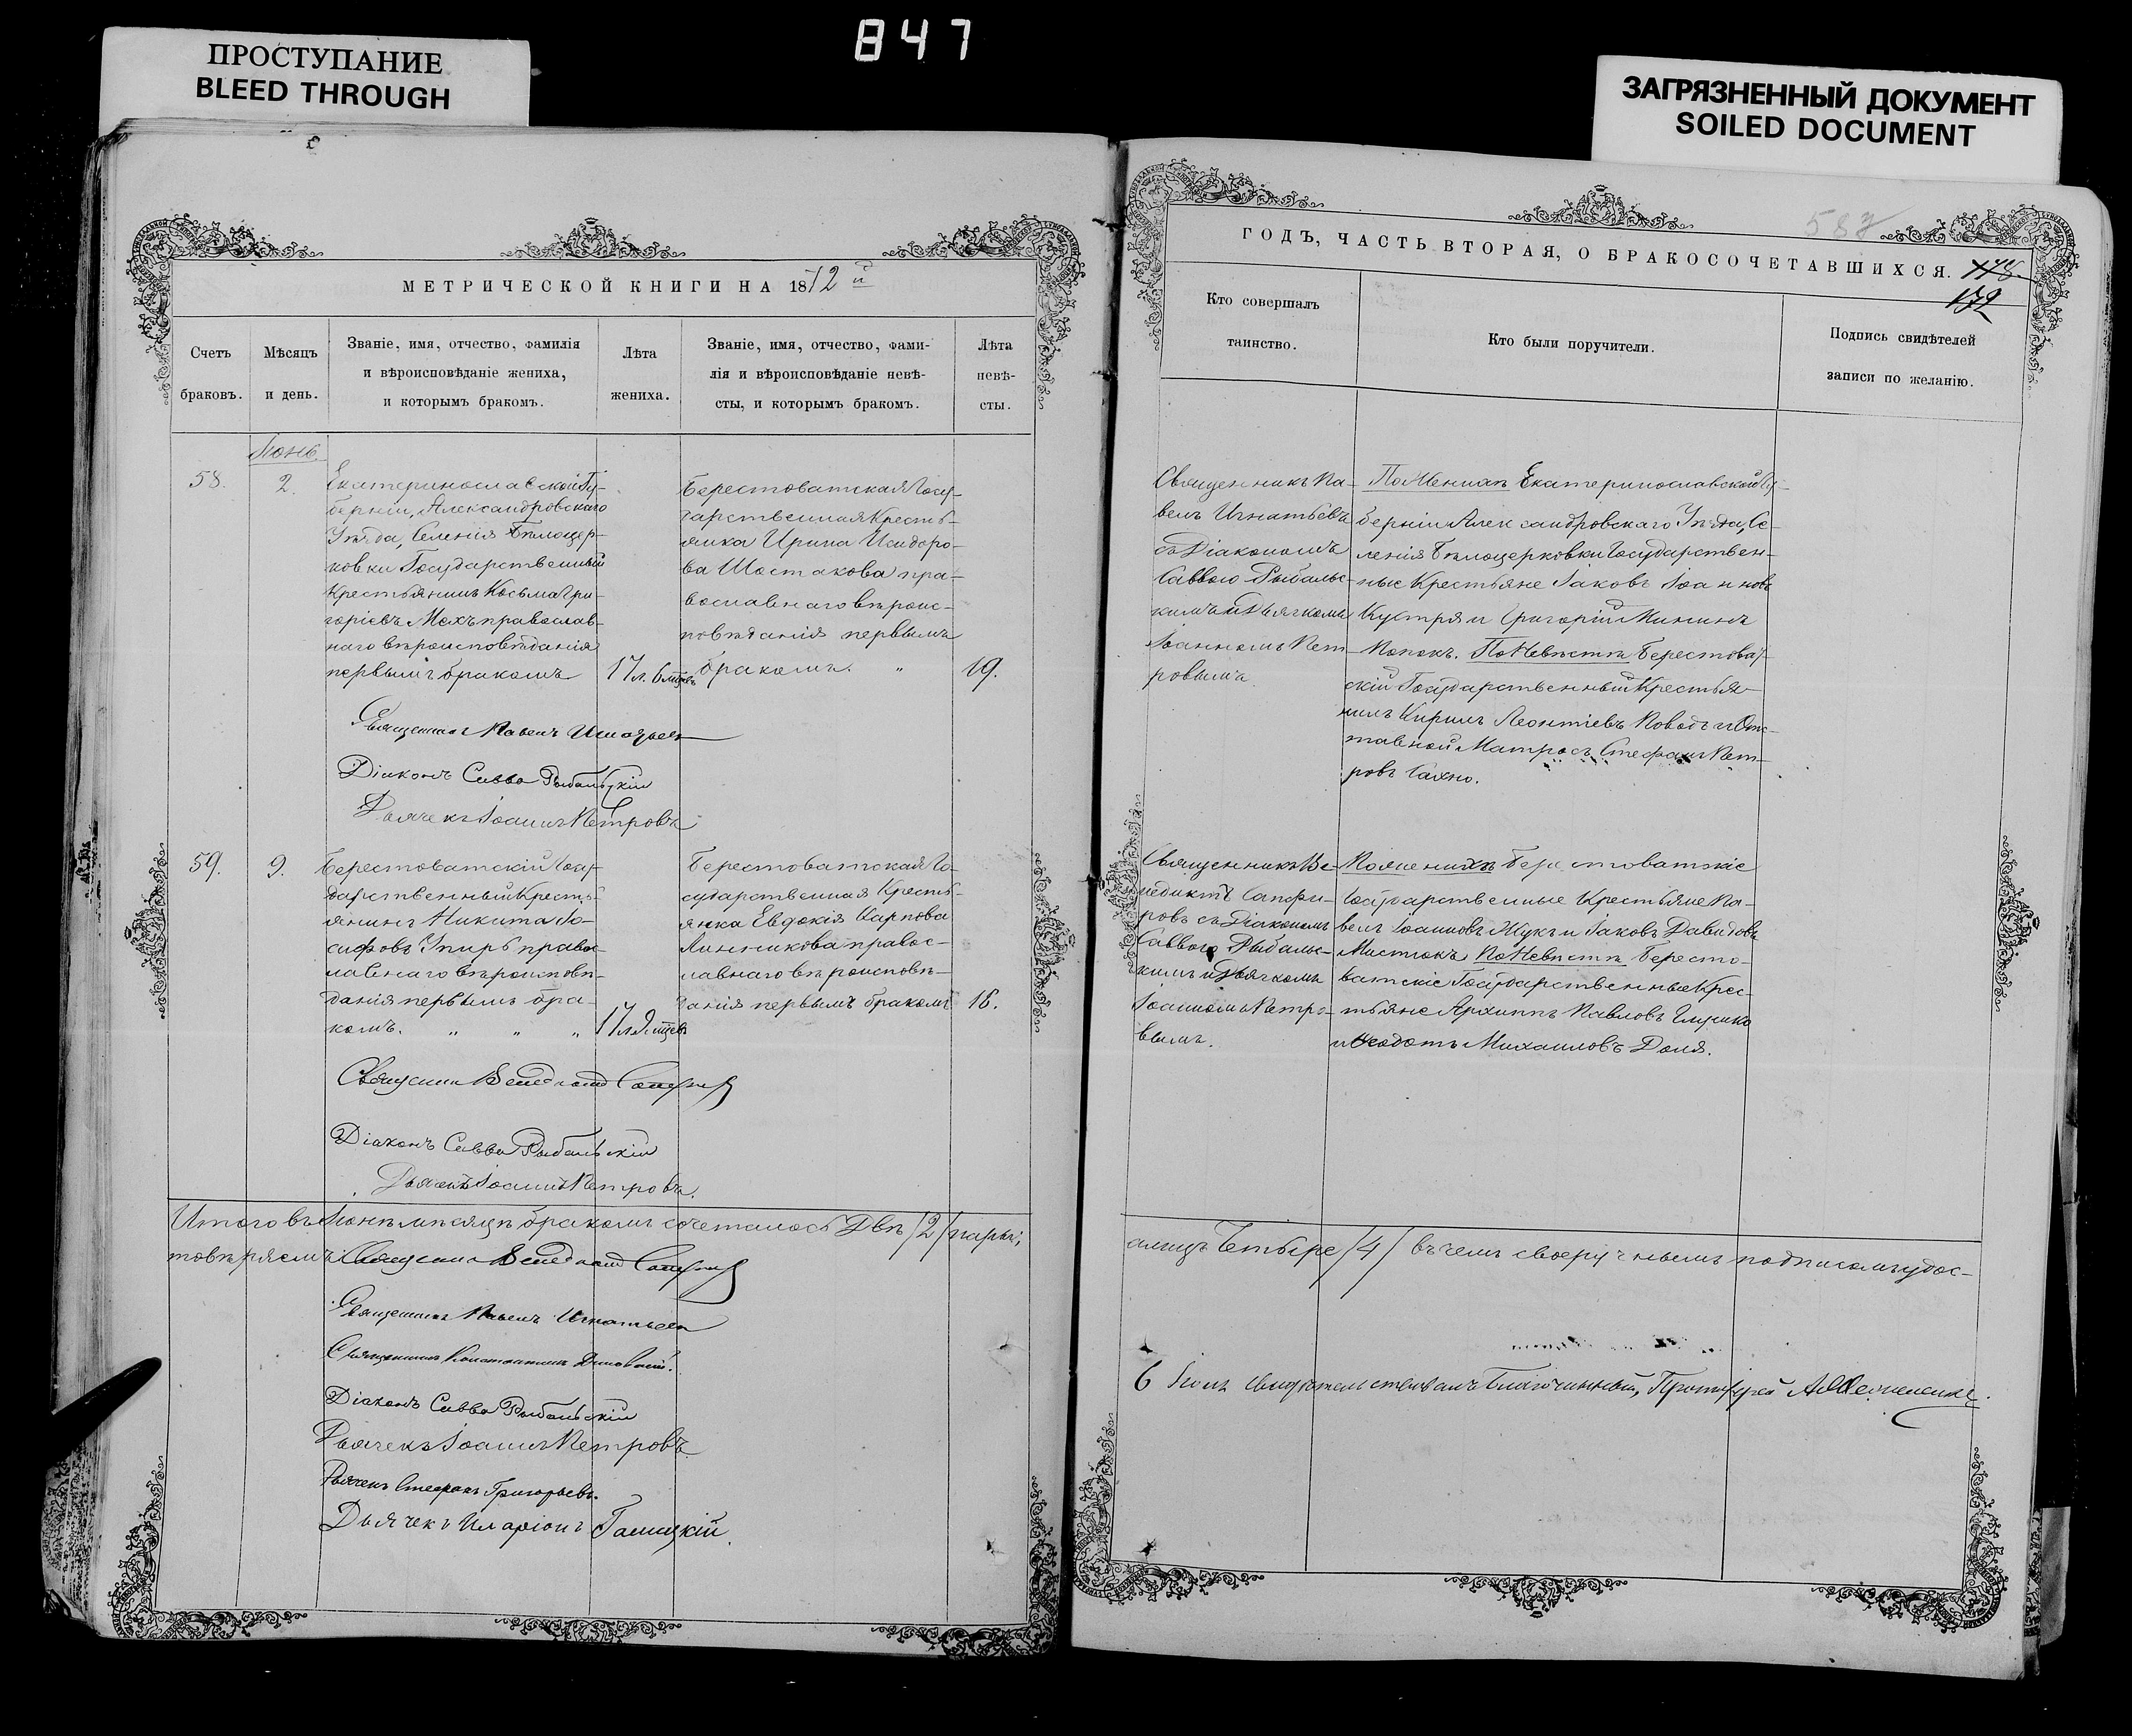 847
ПРОСТУПАНИЕ
BLEED THROUGH
ЗАГРЯЗНЕННЫЙ ДОКУМЕНТ
SOILED DOCUMENT
МЕТРИЧЕСКОЙ КНИГИ НА 1872й
Счетъ
браковъ.
Мѣсяцъ
и день.
Званіе, имя, отчество, фамилія
и вѣроисповѣданіе жениха,
и которымъ бракомъ.
Лѣта
жениха.
Званіе, имя, отчество, фами-
лія и вѣроисповѣданіе невѣ-
сты, и которымъ бракомъ.
Лѣта
невѣ-
сты.
Іюнь
58.
2.
Екатеринославской Гу-
берніи, Александровскаго
Уѣзда, Селенія Бѣлоцер-
ковки Государственный
Крестьянинъ Косьма Гри-
горіевъ Мохъ православ-
наго вѣроисповѣданія
первымъ бракомъ
17 л. 6 мцевъ
Берестоватская Госу-
дарственная Кресть-
янка Ирина Исидоро-
ва Шостакова пра-
вославнаго вѣроис-
повѣданія первымъ
бракомъ. "
19.
Священникъ Павелъ Игнатьевъ
Діаконъ Савва Рыбальскій
Дьячекъ Іоаннъ Петровъ
59.
9.
Берестоватскій Госу-
дарственный Кресть-
янинъ Никита Іо-
сифовъ Упирь правос-
лавнаго вѣроисповѣ-
данія первымъ бра-
комъ. " " "
17 л. 9 мцевъ
Берестоватская Го-
сударственная Кресть-
янка Евдокія Карпова
Линникова правос-
лавнаго вѣроисповѣ-
данія первымъ бракомъ
18.
Священникъ Венедиктъ Сапфировъ
Діаконъ Савва Рыбальскій
Дьячекъ Іоаннъ Петровъ.
Итого въ Іюнѣ мѣсяцѣ бракомъ сочеталось Двѣ /2/ пары;
товѣряемъ: Священникъ Венедиктъ Сапфировъ
Священникъ Павелъ Игнатьевъ
Священникъ Константинъ
Діаконъ Савва Рыбальскій
Дьячекъ Іоаннъ Петровъ
Дьячекъ Стефанъ Григорьевъ.
Дьячекъ Иларіонъ Галицкій.
587
ГОДЪ, ЧАСТЬ ВТОРАЯ, О БРАКОСОЧЕТАВШИХСЯ.
172
Кто совершалъ
таинство.
Кто были поручители.
Подпись свидѣтелей
записи по желанію.
Священникъ Па-
велъ Игнатьевъ
съ Діакономъ
Саввою Рыбальс-
кимъ и Дьячкомъ
Іоанномъ Пет-
ровымъ
По Женихѣ Екатеринославской Гу-
берніи Александровскаго Уѣзда, Се-
ленія Бѣлоцерковки Государствен-
ные Крестьяне Іаковъ Іоанновъ
Кустря и Григорій Мининъ
Попокъ. По Невѣстѣ Берестоват-
скій Государственный Крестья-
нинъ Кирилъ Леонтіевъ Поводъ и Отс-
тавной Матросъ Стефанъ Пет-
ровъ Сахно.
Священникъ Ве-
недиктъ Сапфи-
ровъ съ Діакономъ
Саввою Рыбальс-
кимъ и Дьячкомъ
Іоанномъ Петро-
вымъ.
По женихѣ Берестоватскіе
Государственные Крестьяне Па-
велъ Іоанновъ Жукъ и Іаковъ Давидовъ
Мистюкъ По Невѣстѣ Бересто-
ватскіе Государственные Крес-
тьяне Архиппъ Павловъ
и Ѳеодотъ Михаиловъ Доля.
а лицъ Четыре /4/ въ чемъ своеручнымъ подписомъ удос-
6 Іюля свидѣтельствовалъ Благочинный, Протоіерей